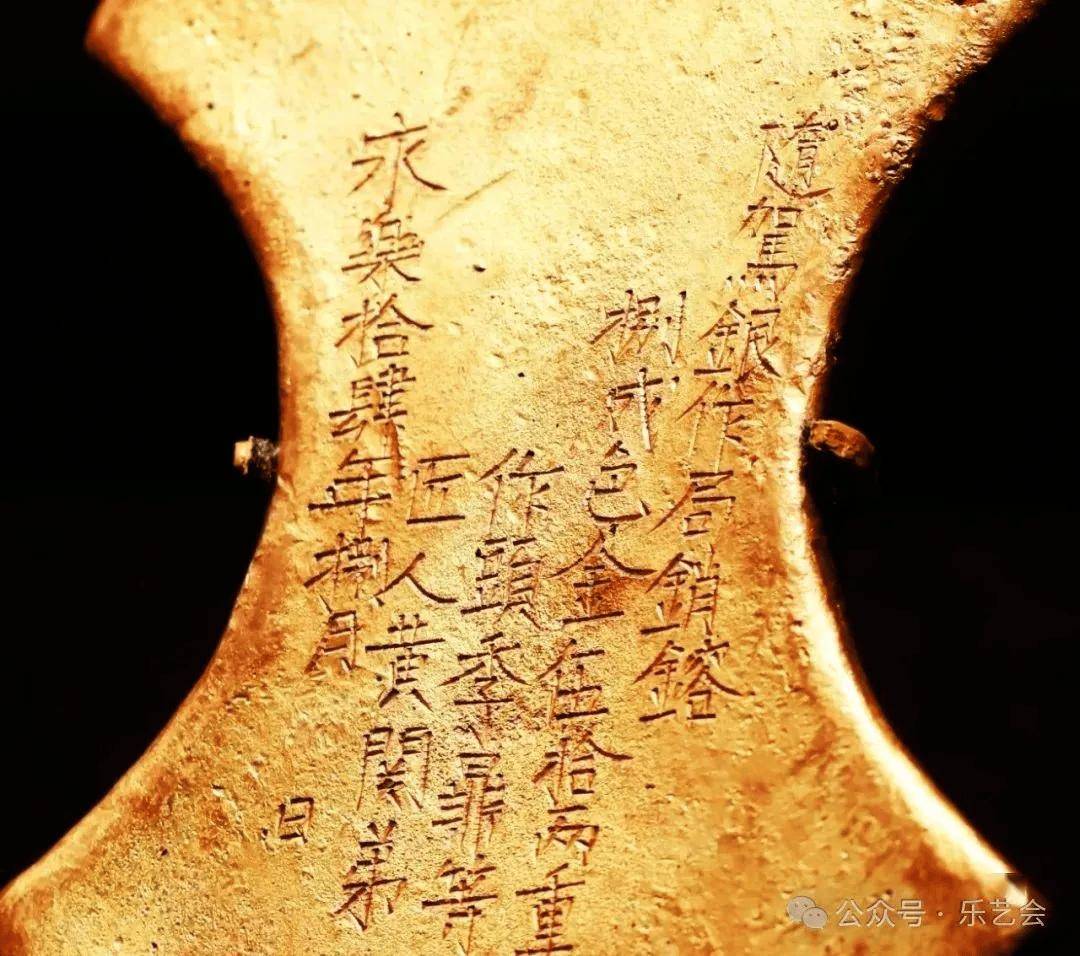 隨駕銀作局銷鎔
捌成色金伍拾兩重
作頭季鼎等
匠人黃関弟
永樂拾肆年捌月 日
公众号·乐艺会